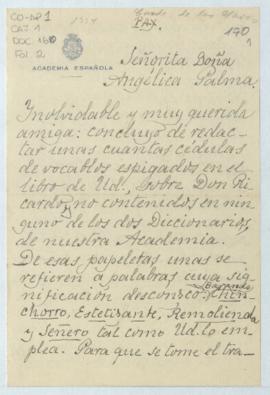 CO-AP1
CAJ. 1
DOC. 160
Fol 2
1934
Conde de las
PAX.
170
ACADEMIA ESPAÑOLA
Señorita Doña
Angélica Palma.
Inolvidable y muy querida
amiga: concluyo de redac-
tar unas cuantas cédulas
de vocablos espigados en el
libro de Ud., sobre Don Ri-
cardo, no contenidos en nin-
guno de los dos Diccionarios
de nuestra Academia.
De esas papeletas unas se
refieren a palabras cuya sig-
nificación desconozco, Chin-
chorro, Estetisante, Remolienda
y Señero tal como Ud. lo em-
plea. Para que se tome el tra-